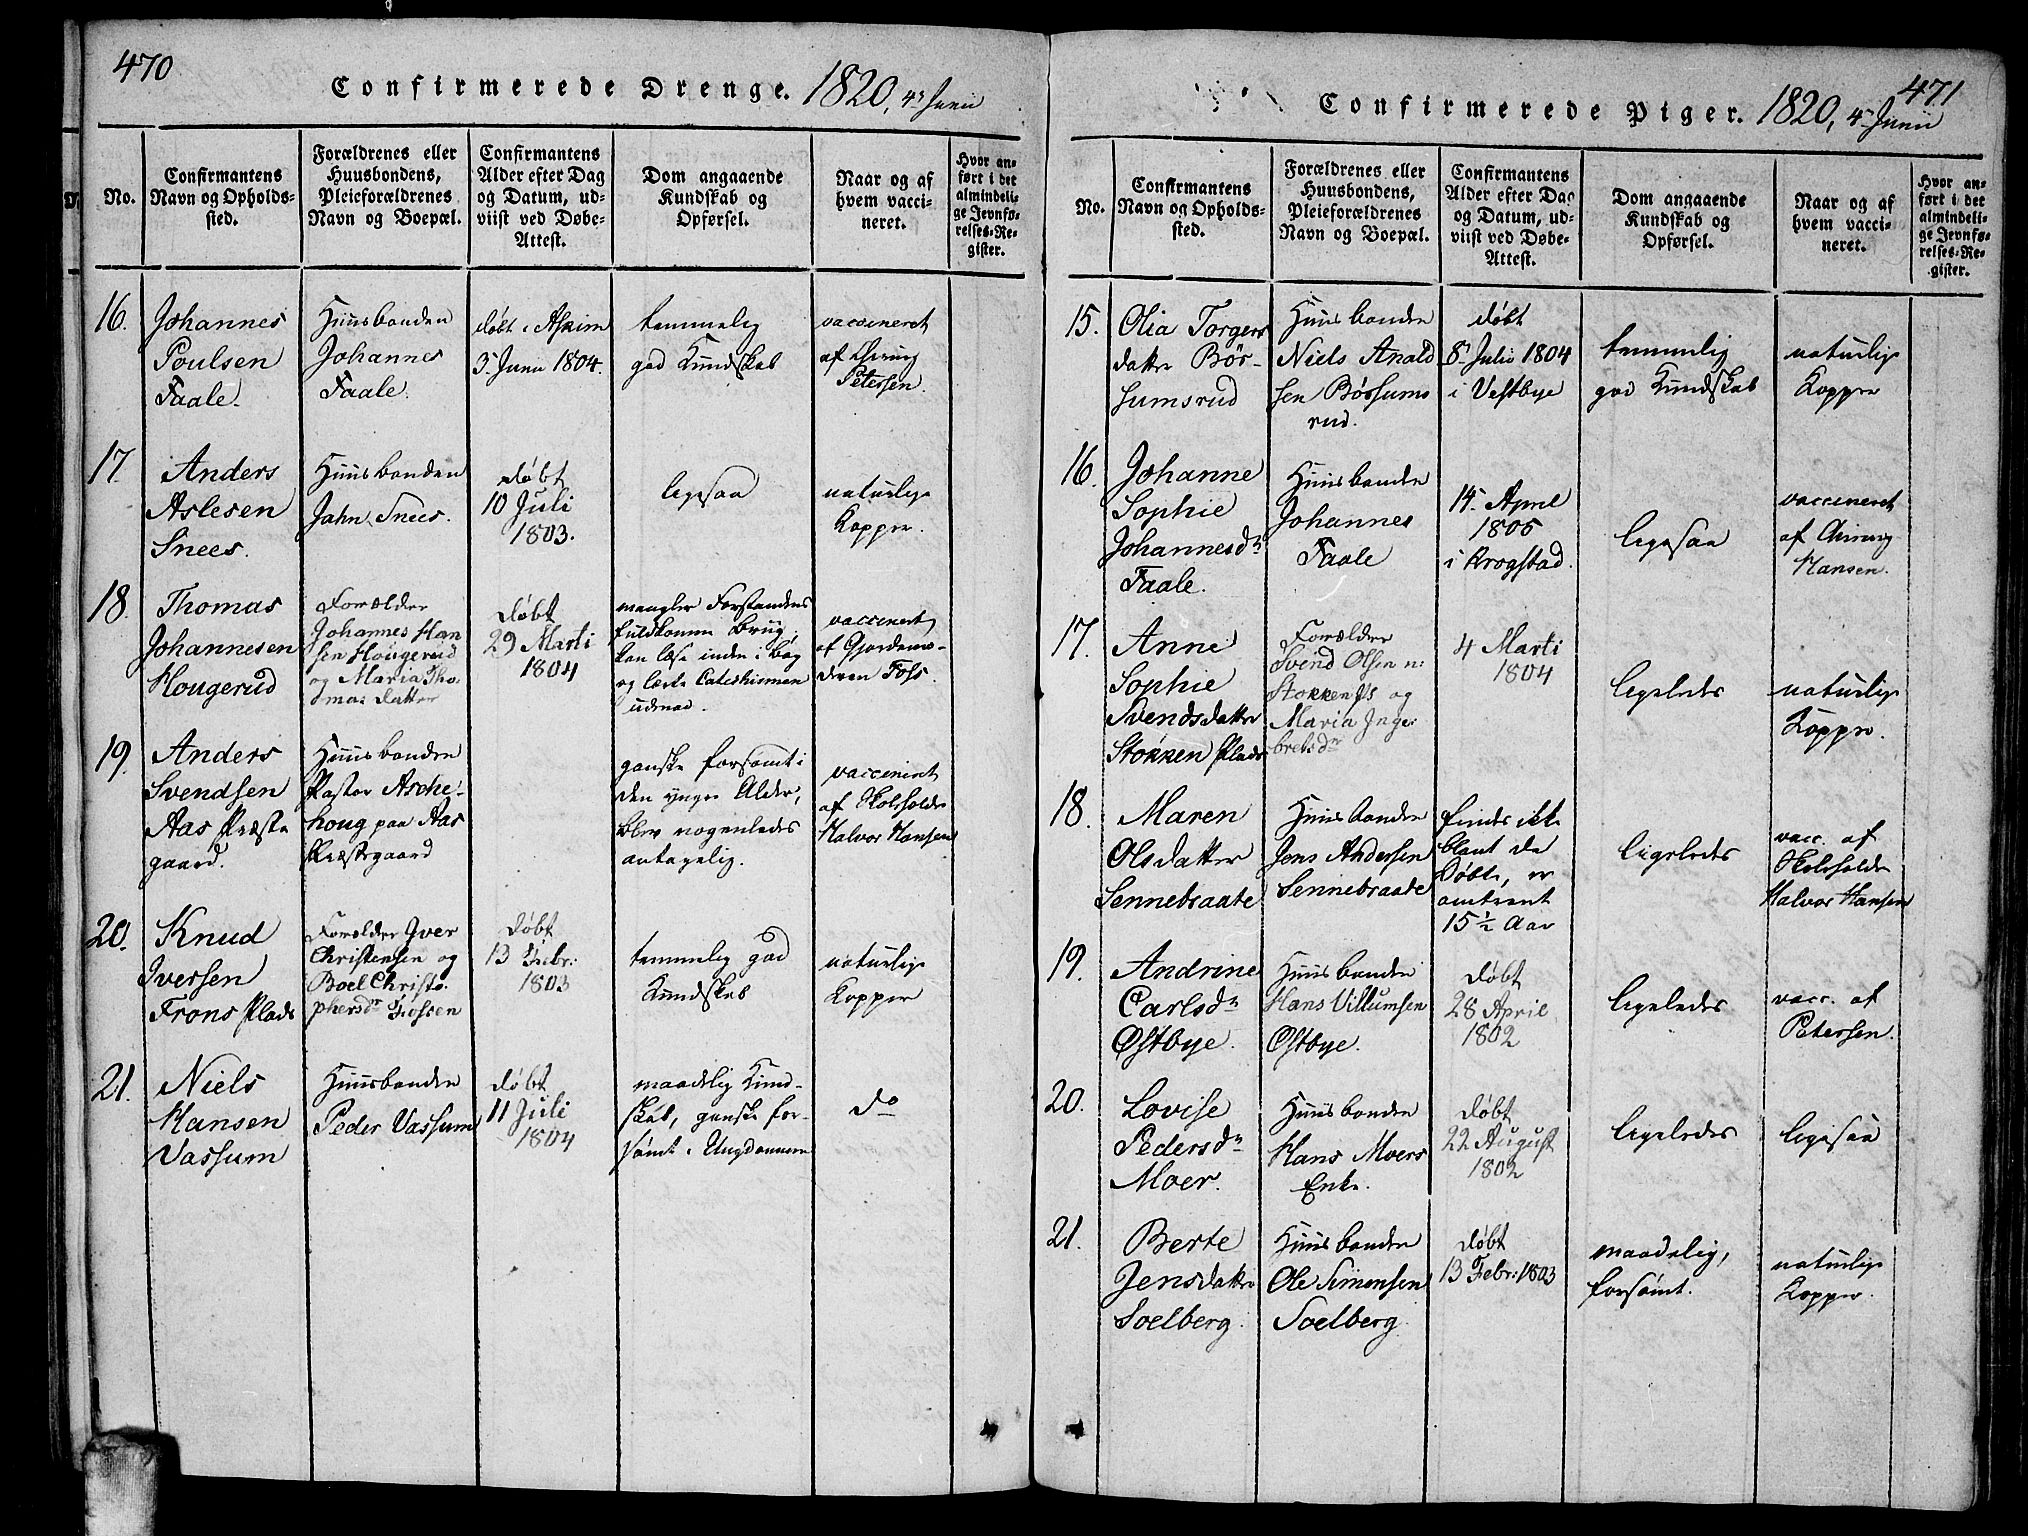 470
Confirmerede Drenge. 1820, 4de Junii
No.
Confirmantens
Navn og Opholds-
sted.
Forældrenes eller
Huusbondens,
Pleieforældrenes
Navn og Boepæl.
Confirmantens
Alder efter Dag
og Datum, ud-
viist ved Døbe-
Attest.
Dom angaaende
Kundskab og
Opførsel.
Naar og af
hvem vacci-
neret.
Hvor an-
ført i det
almindeli-
ge Jevnfø-
relses-Re-
gister.
16.
Johannes
Poulsen
Faale.
Huusbonden
Johannes
Faale.
døbt i Askim
3 Junii 1804.
temmelig
god Kundskab
vaccineret
af Chirurg
Petersen.
17.
Anders
Aslesen
Snees.
Huusbonden
Jahn Snees.
døbt
10 Juli
1803.
ligesaa
naturlige
Kopper
18.
Thomas
Johannesen
Hougerud
Forælder
Johannes Han
sen Hougerud
og Maria Tho
mas datter
døbt
29 Marti
1804
mangler Forstandens
fuldkomne Brug,
kan læse inden i Bog
og lærte Catechismen
udenad.
vaccineret
af Gjordemo-
deren Foss.
19.
Anders
Svendsen
Aas Præste
gaard.
Huusbonden
Pastor Asche-
houg paa Aas
Præstegaard
ganske forsømt i
den yngre Alder,
blev nogenledes
antagelig.
vaccineret
af Skoleholder
Halvor Hansen
20.
Knud
Iversen
Frons Plads
Forælder Iver
Christensen og
Boel Christo
phersdr Frossen
døbt
13 Febr:
1803
temmelig god
Kundskab
naturlige
Kopper
21.
Niels
Hansen
Vassum
Huusbonden
Peder Vassum
døbt
11 Juli
1804
maadelig Kund-
skab, ganske for-
sømt i Ungdommen
do
471
Confirmerede Piger. 1820, 4de Junii
No.
Confirmantens
Navn og Opholds-
sted.
Forældrenes eller
Huusbondens,
Pleieforældrenes
Navn og Boepæl.
Confirmantens
Alder efter Dag
og Datum, ud-
viist ved Døbe-
Attest.
Dom angaaende
Kundskab og
Opførsel.
Naar og af
hvem vacci-
neret.
Hvor an-
ført i det
almindeli-
ge Jevnfø-
relses-Re-
gister.
15.
Olia Torgers
datter Bør-
sumsrud
Huusbonden
Niels Anald
sen Børsums
rud.
døbt
8 Julii 1804
i Vestbye
temmelig
god Kundskab
naturlige
Kopper
16.
Johanne
Sophie
Johannesdr
Faale.
Huusbonden
Johannes
Faale
14 April
1805
i Krogstad.
ligesaa
vaccineret
af Chirurg
Hansen.
17.
Anne
Sophie
Svendsdatter
Stokken Plads
Forælder
Svend Olsen n:
Stokken Pls og
Maria Inge
bretsdr
4 Marti
1804
ligeledes
naturlige
Kopper.
18.
Maren
Olsdatter
Sennebraate
Huusbonden
Jens Andersen
Sennebraate
findes ikke
blant de
Døbte, er
omtrent
15 1/2 Aar
ligeledes
vacc. af
Skoleholder
Halvor Hansen
19.
Andrine
Carlsdr
Østbye.
Huusbonden
Hans Villumsen
Østbye.
døbt
28 April
1802
ligeledes
vacc. af
Petersen.
20.
Lovise
Pedersdr
Moer.
Huusbonden
Hans Moers
Enke.
døbt
22 August
1802
ligeledes
ligesaa
21.
Berte
Jensdatter
Soelberg.
Huusbonden
Ole Simensen
Soelberg.
døbt
13 Febr: 1803
maadelig,
forsømt.
naturlige
Kopper.